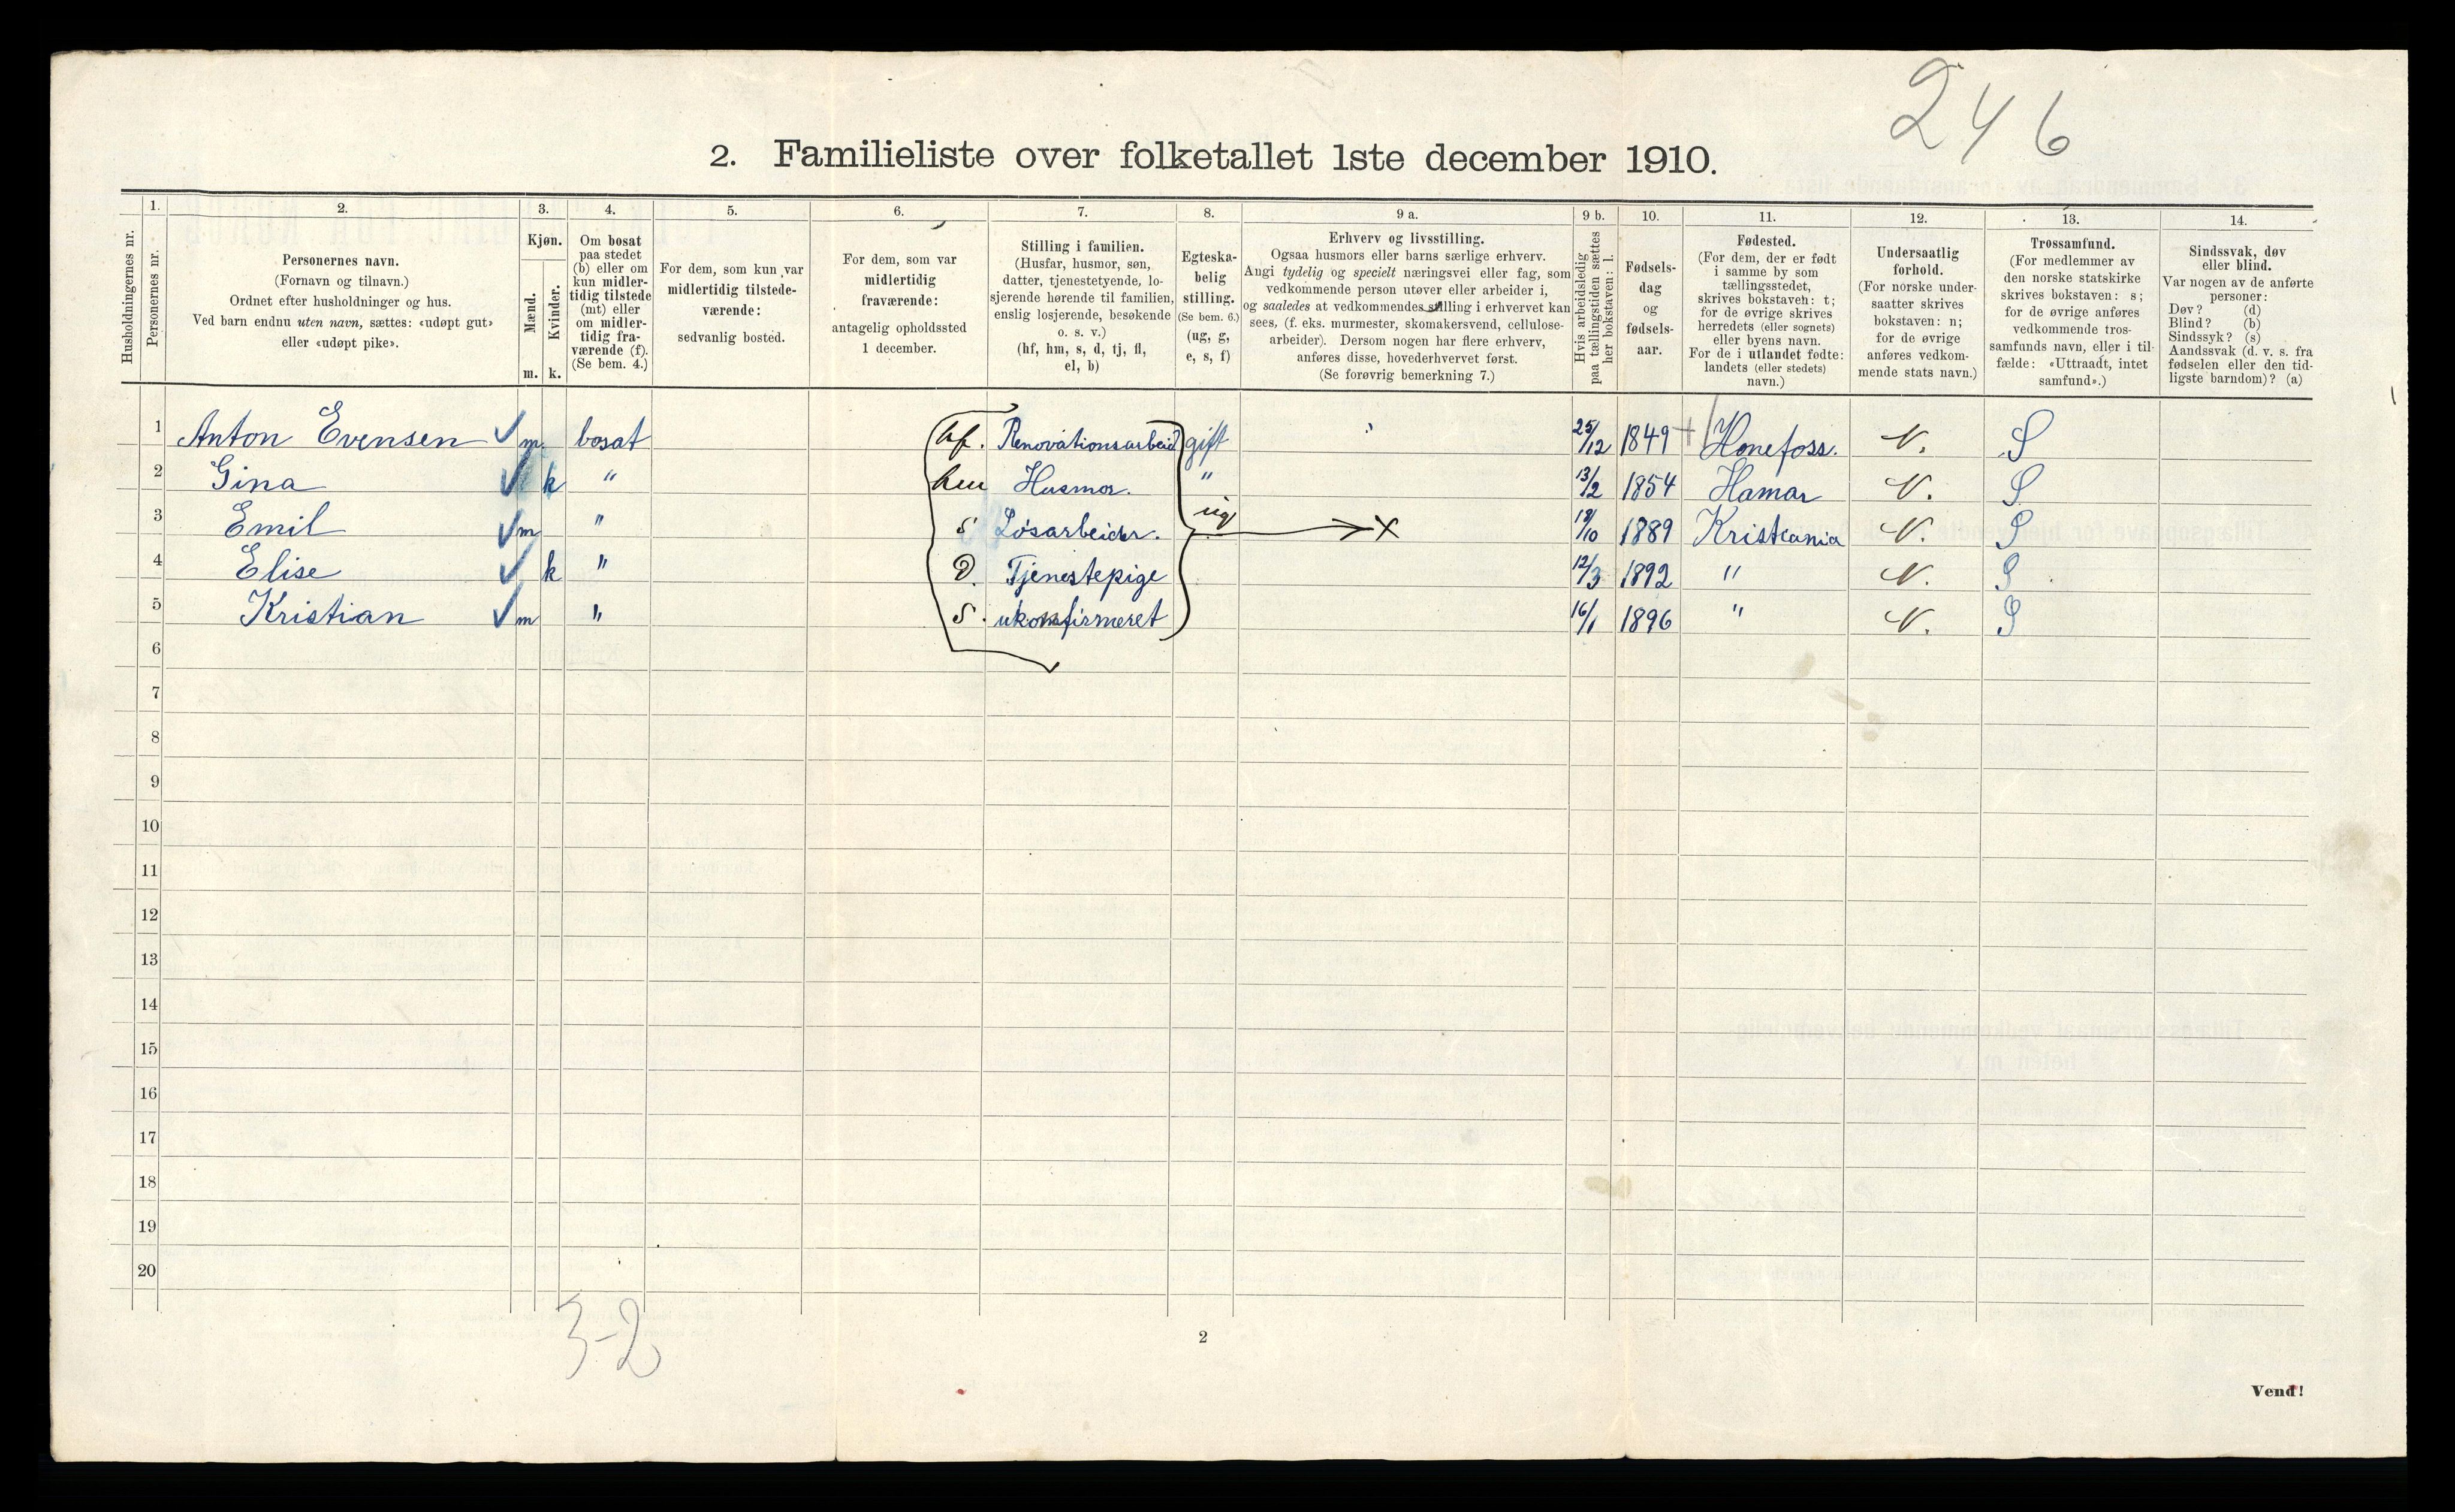 246
2. Familieliste over folketallet 1ste december 1910.
Husholdningernes nr.
1. Personernes nr.
2. Personernes navn.
(Fornavn og tilnavn.)
Ordnet efter husholdninger og hus.
Ved barn endnu uten navn, sættes: «udøpt gut»
eller «udøpt pike».
3. Kjøn.
Mænd. m.
Kvinder. k.
4. Om bosat
paa stedet
(b) eller om
kun midler-
tidig tilstede
(mt) eller
om midler-
tidig fra-
værende (f).
(Se bem. 4.)
5. For dem, som kun var
midlertidig tilstede-
værende:
sedvanlig bosted.
6. For dem, som var
midlertidig
fraværende:
antagelig opholdssted
1 december.
7. Stilling i familien.
(Husfar, husmor, søn,
datter, tjenestetyende, lo-
sjerende hørende til familien,
enslig losjerende, besøkende
o. s. v.)
(hf, hm, s, d, tj, fl,
el, b)
8. Egteska-
belig
stilling.
(Se bem. 6.)
(ug, g,
e, s, f)
9 a. Erhverv og livsstilling.
Ogsaa husmors eller barns særlige erhverv.
Angi tydelig og specielt næringsvei eller fag, som
vedkommende person utøver eller arbeider i,
og saaledes at vedkommendes stilling i erhvervet kan
sees, (f. eks. murmester, skomakersvend, cellulose-
arbeider). Dersom nogen har flere erhverv,
anføres disse, hovederhvervet først.
(Se forøvrig bemerkning 7.)
9 b. Hvis arbeidsledig
paa tællingstiden sættes
her bokstaven: l.
10. Fødsels-
dag
og
fødsels-
aar.
11. Fødested.
(For dem, der er født
i samme by som
tællingsstedet,
skrives bokstaven: t;
for de øvrige skrives
herredets (eller sognets)
eller byens navn.
For de i utlandet fødte:
landets (eller stedets)
navn.)
12. Undersaatlig
forhold.
(For norske under-
saatter skrives
bokstaven: n;
for de øvrige
anføres vedkom-
mende stats navn.)
13. Trossamfund.
(For medlemmer av
den norske statskirke
skrives bokstaven: s;
for de øvrige anføres
vedkommende tros-
samfunds navn, eller i til-
fælde: «Uttraadt, intet
samfund».)
14. Sindssvak, døv
eller blind.
Var nogen av de anførte
personer:
Døv? (d)
Blind? (b)
Sindssyk? (s)
Aandssvak (d. v. s. fra
fødselen eller den tid-
ligste barndom)? (a)
1 Anton Evensen m. bosat hf. Renovationsarbeid gift " 25/12 1849 Honefoss. N. S
2 Gina k " hm Husmor. " 13/2 1854 Hamar N. S
3 Emil m " s Løsarbeider. ug X 18/10 1889 Kristiania N. S
4 Elise k " D. Tjenestepige 12/3 1892 " N. S
5 Kristian m " S. ukonfirmeret 16/1 1896 " N. S
6
7
8
9
10
11
12
13
14
15
16
17
18
19
20
3-2
2
Vend!